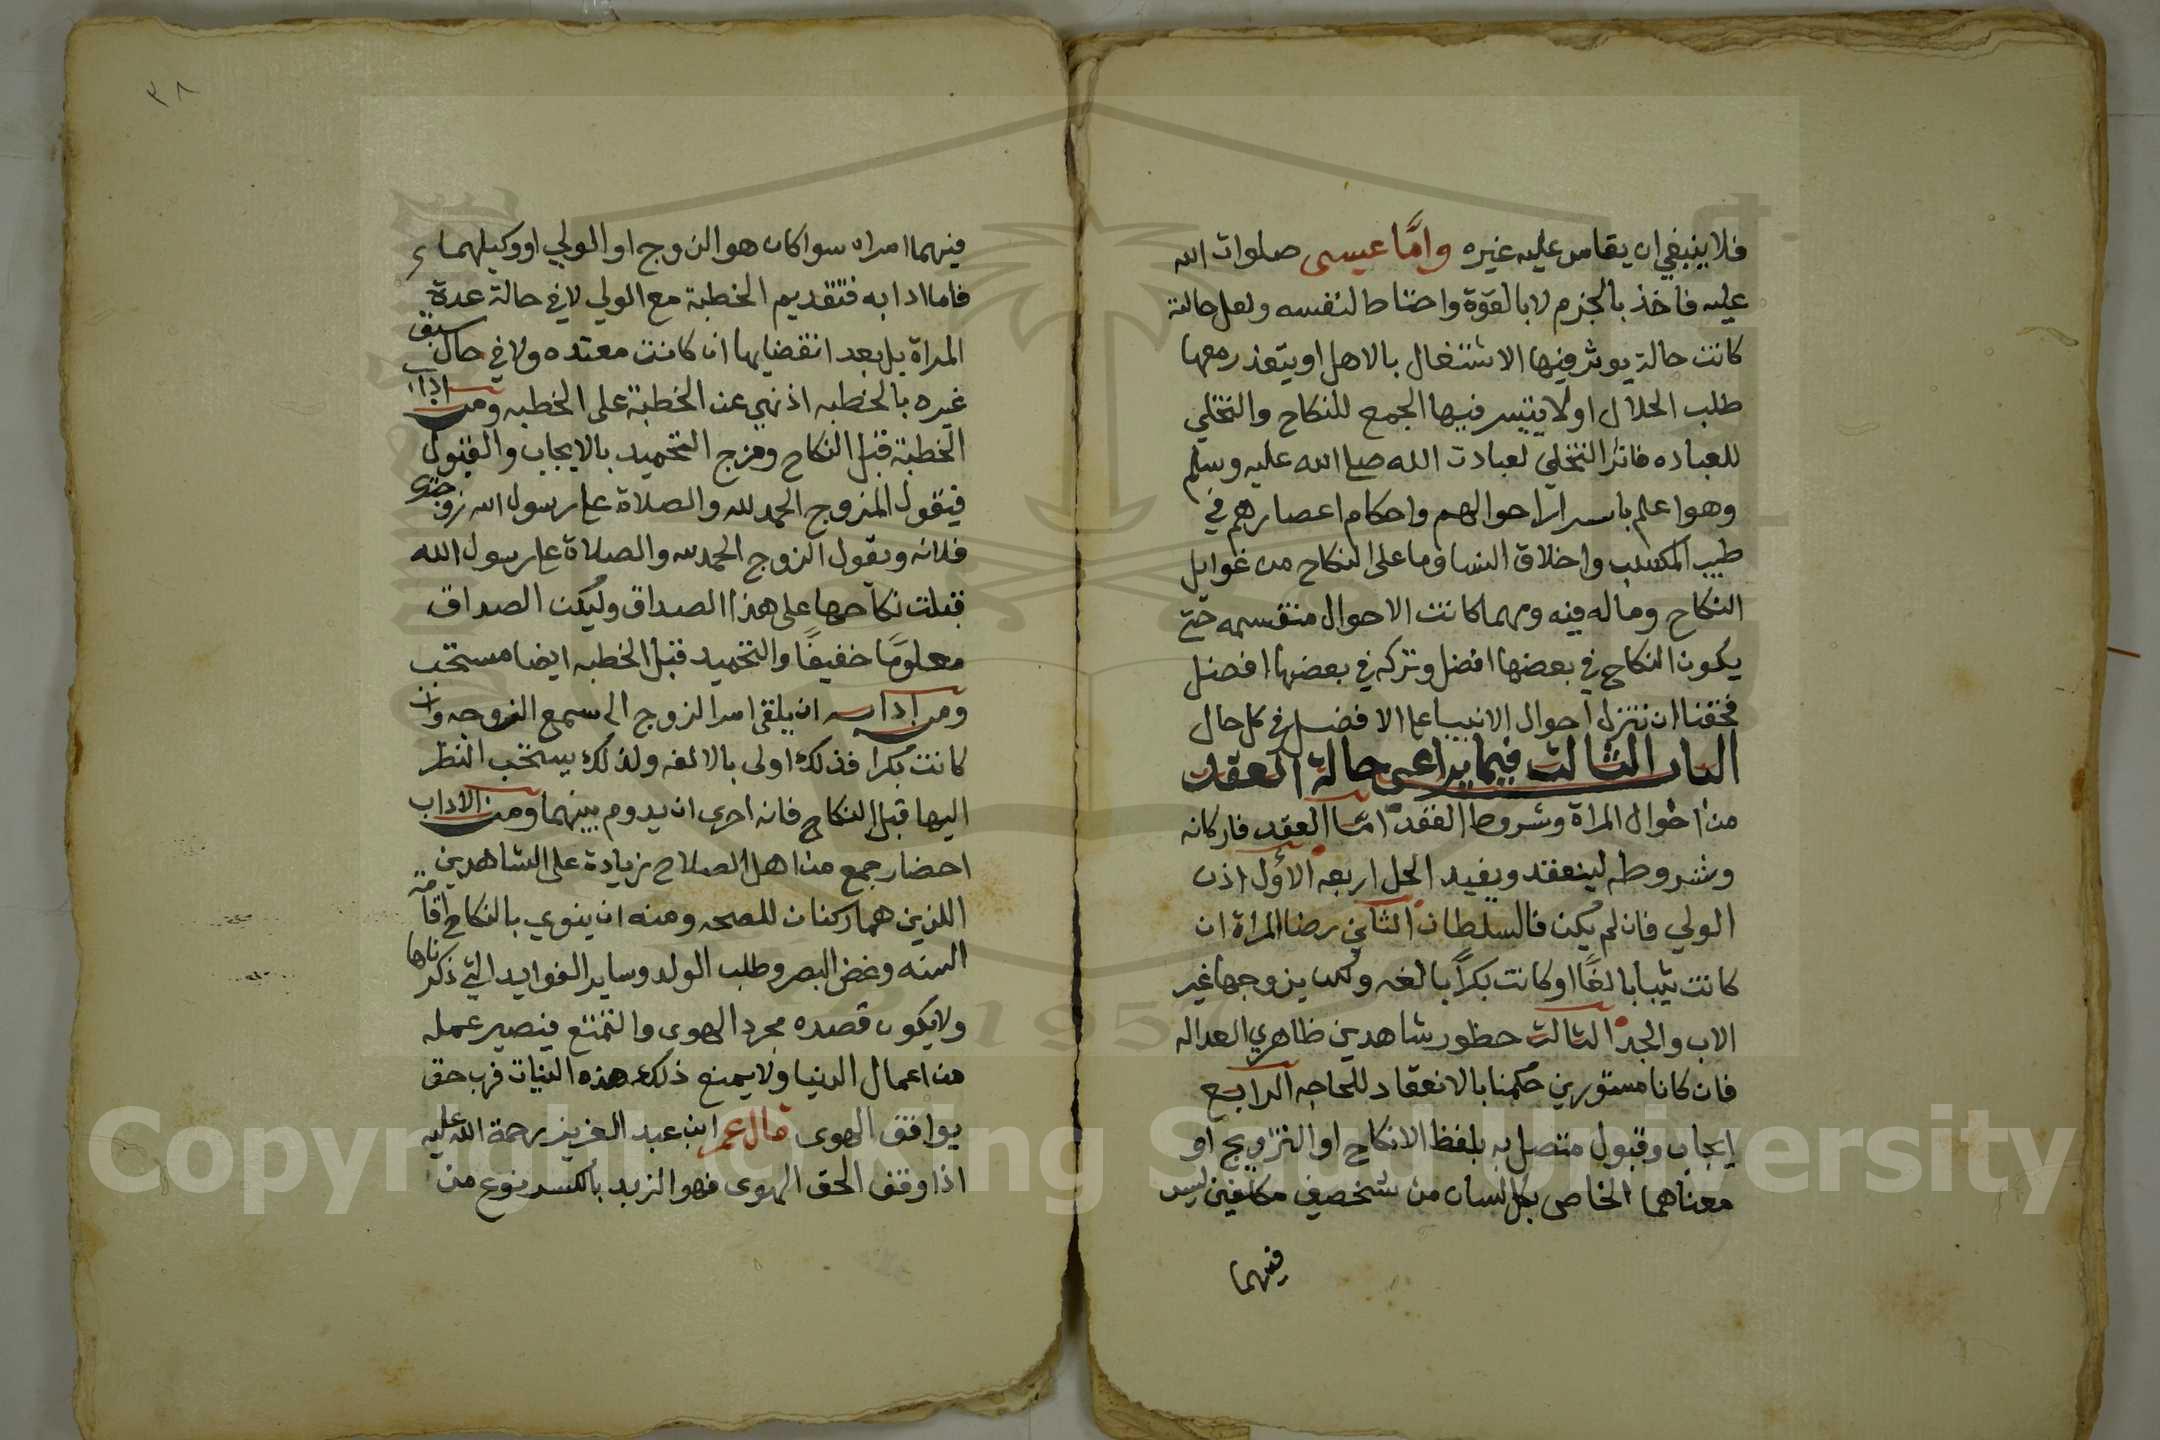 فلا ينبغي ان يقاس عليه غيره واما عيسى صلوات الله
عليه فاخذ بالجزم لا بالقوة واحتاط لنفسه ولعل حالته
كانت حالة يوثر فيها الاشتغال بالاهل او يتعذر معها
طلب الحلال اولا يتيسر فيها الجمع للنكاح والتخلي
للعباده فاثر التخلي لعبادت الله صلى الله عليه وسلم
وهو اعلم باسرار احوالهم واحكام اعصارهم في
طيب المكسب واخلاق النسا وما على النكاح من غوايل
النكاح وماله فيه ومهما كانت الاحوال منقسمه حتى
يكون النكاح في بعضها افضل وتركه في بعضها افضل
فحقنا ان ننزل احوال الانبيا على الافضل في كل حال
الباب الثالث فيما يراعى حالة العقد
من احوال المراة وشروط العقد اما العقد فاركانه
وشروطه لينعقد ويفيد الحل اربعه الاول اذن
الولي فان لم يكن فالسلطان الثاني رضا المراة ان
كانت ثيبا بالغا او كانت بكرا بالغه ولكن يزوجها غير
الاب والجد الثالث حظور شاهدين ظاهري العداله
فان كانا مستورين حكمنا بالانعقاد للحاجه الرابع
ايجاب وقبول متصل به بلفظ الانكاح او التزويج او
معناهما الخاص بكل لسان من شخصين مكلفين ليس
فيهما
٣٨
فيهما امراه سوا كان هو الزوج او الولي او وكيلهما
فاما ادابه فتقديم الخطبة مع الولي لا في حالة عدة
المراة بل بعد انقضايها ان كانت معتده ولا في حال سبق
غيره بالخطبه اذ نهي عن الخطبة على الخطبه ومن اداب
الخطبة قبل النكاح ومزج التحميد بالايجاب والقبول
فيقول المزوج الحمد لله والصلاة على رسول الله زوجتك
فلانه ويقول الزوج الحمد لله والصلاة على رسول الله
قبلت نكاحها على هذا الصداق وليكن الصداق
معلوما خفيفا والتحميد قبل الخطبه ايضا مستحب
ومن ادابه ان يلقى امر الزوج الى سمع الزوجه وان
كانت بكرا فذلك اولى بالالفه ولذلك يستحب النظر
اليها قبل النكاح فانه احرى ان يدوم بينهما ومن الاداب
احضار جمع من اهل الصلاح زيادة على الشاهدين
اللذين هما ركنان للصحه ومنه ان ينوي بالنكاح اقامة
السنه وغض البصر وطلب الولد وساير الفوايد التي ذكرناها
ولا يكون قصده مجرد الهوى والتمتع فيصير عمله
من اعمال الدنيا ولا يمنع ذلك هذه النيات فرب حق
يوافق الهوى قال عمر ابن عبد العزيز رحمة الله عليه
اذا وفق الحق الهوى فهو الزبد بالكسد نوع من
Copyright © King Saud University
1957